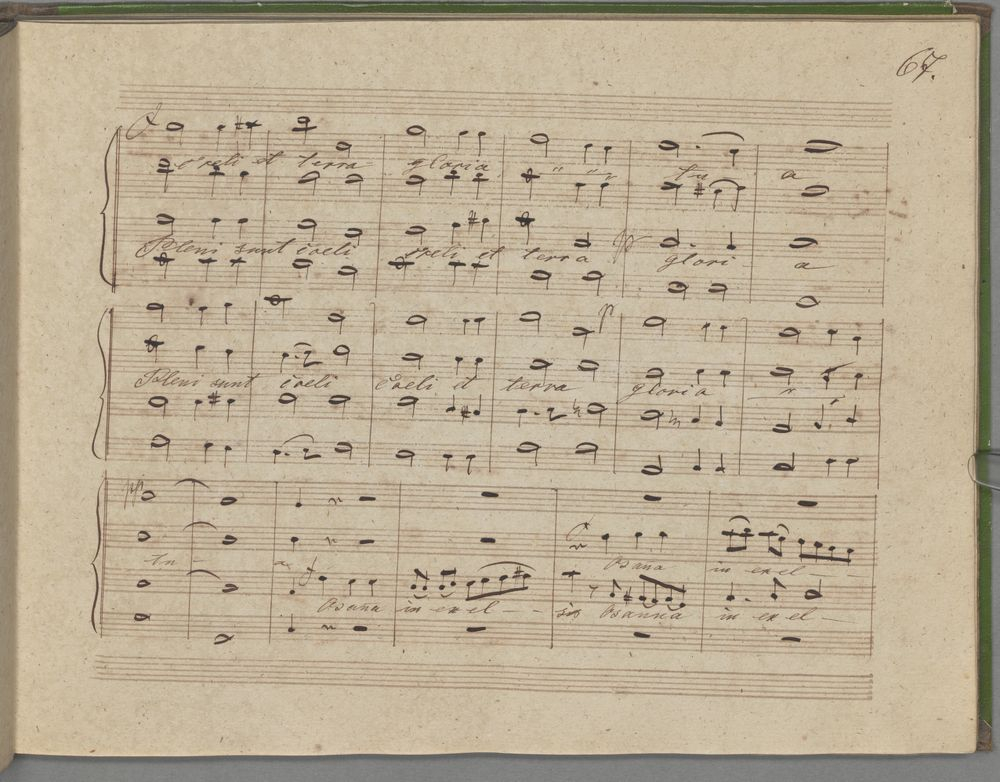 67.
coeli et terra gloria " " tu a
Pleni sunt coeli coeli et terra glori a
Pleni sunt coeli Coeli et terra gloria
pp
tu
Osana in exel - -
f
Osana in exel - - sis Osanna in exel -